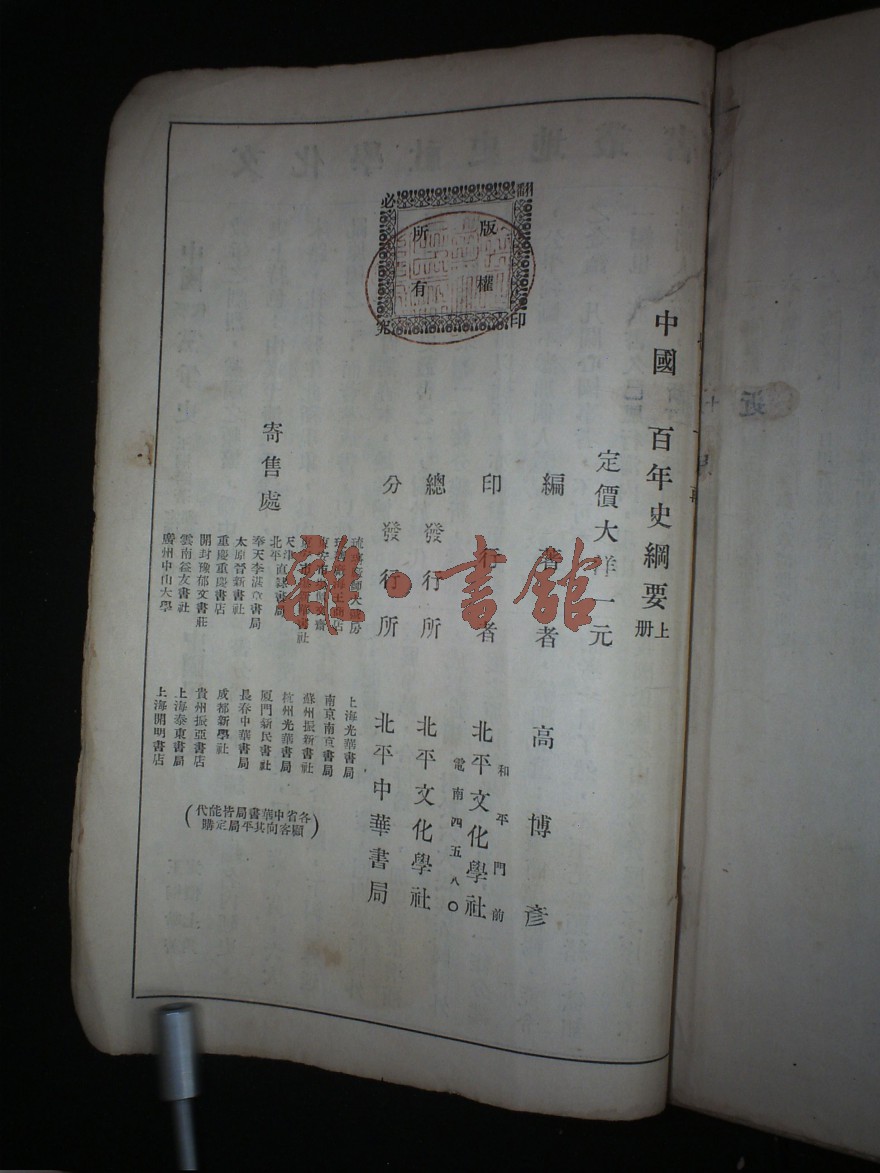 中國 百年史綱要 上册
定價大洋一元
編著者 高博彥
印行者 北平文化學社
和平門前
電南四五八〇
總發行所 北平文化學社
分發行所 北平中華書局
版權所有
翻印必究
寄售處
天津直隸書局
奉天李湛章書局
太原晉新書社
重慶重慶書店
開封豫郁文書莊
雲南益友書社
廣州中山大學
上海光華書局
南京南京書局
蘇州振新書社
杭州光華書局
厦門新民書社
長春中華書局
成都新學社
貴州振亞書店
上海泰東書局
上海開明書店
(各省中華書局皆能代
顧客向其平局定購)
雜·書館
近